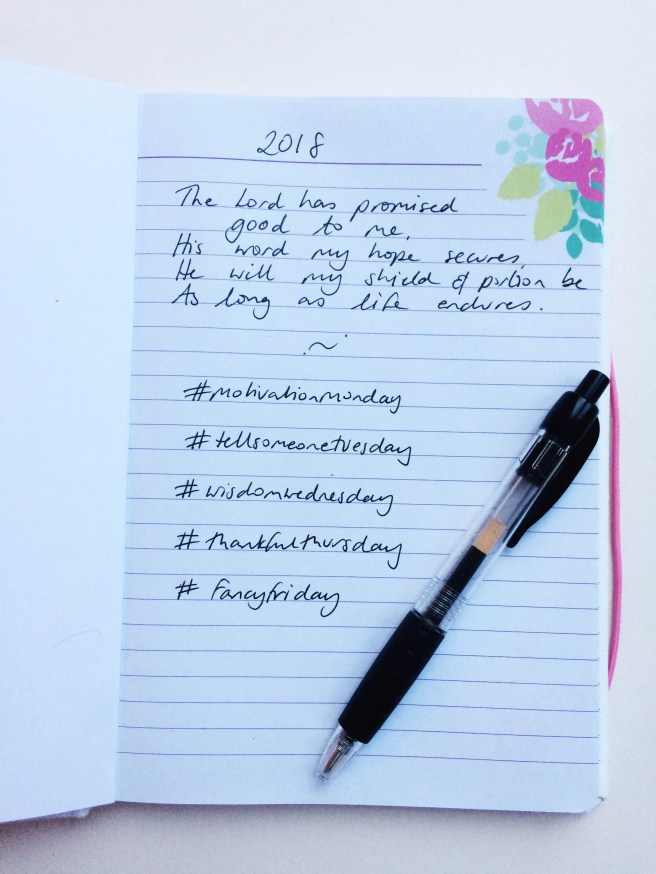 2018
The Lord has promised
good to me,
His word my hope secures,
He will my shield & portion be
As long as life endures.
~
#motivationmonday
#tellsomeonetuesday
#wisdomwednesday
#thankfulthursday
# fancyfriday